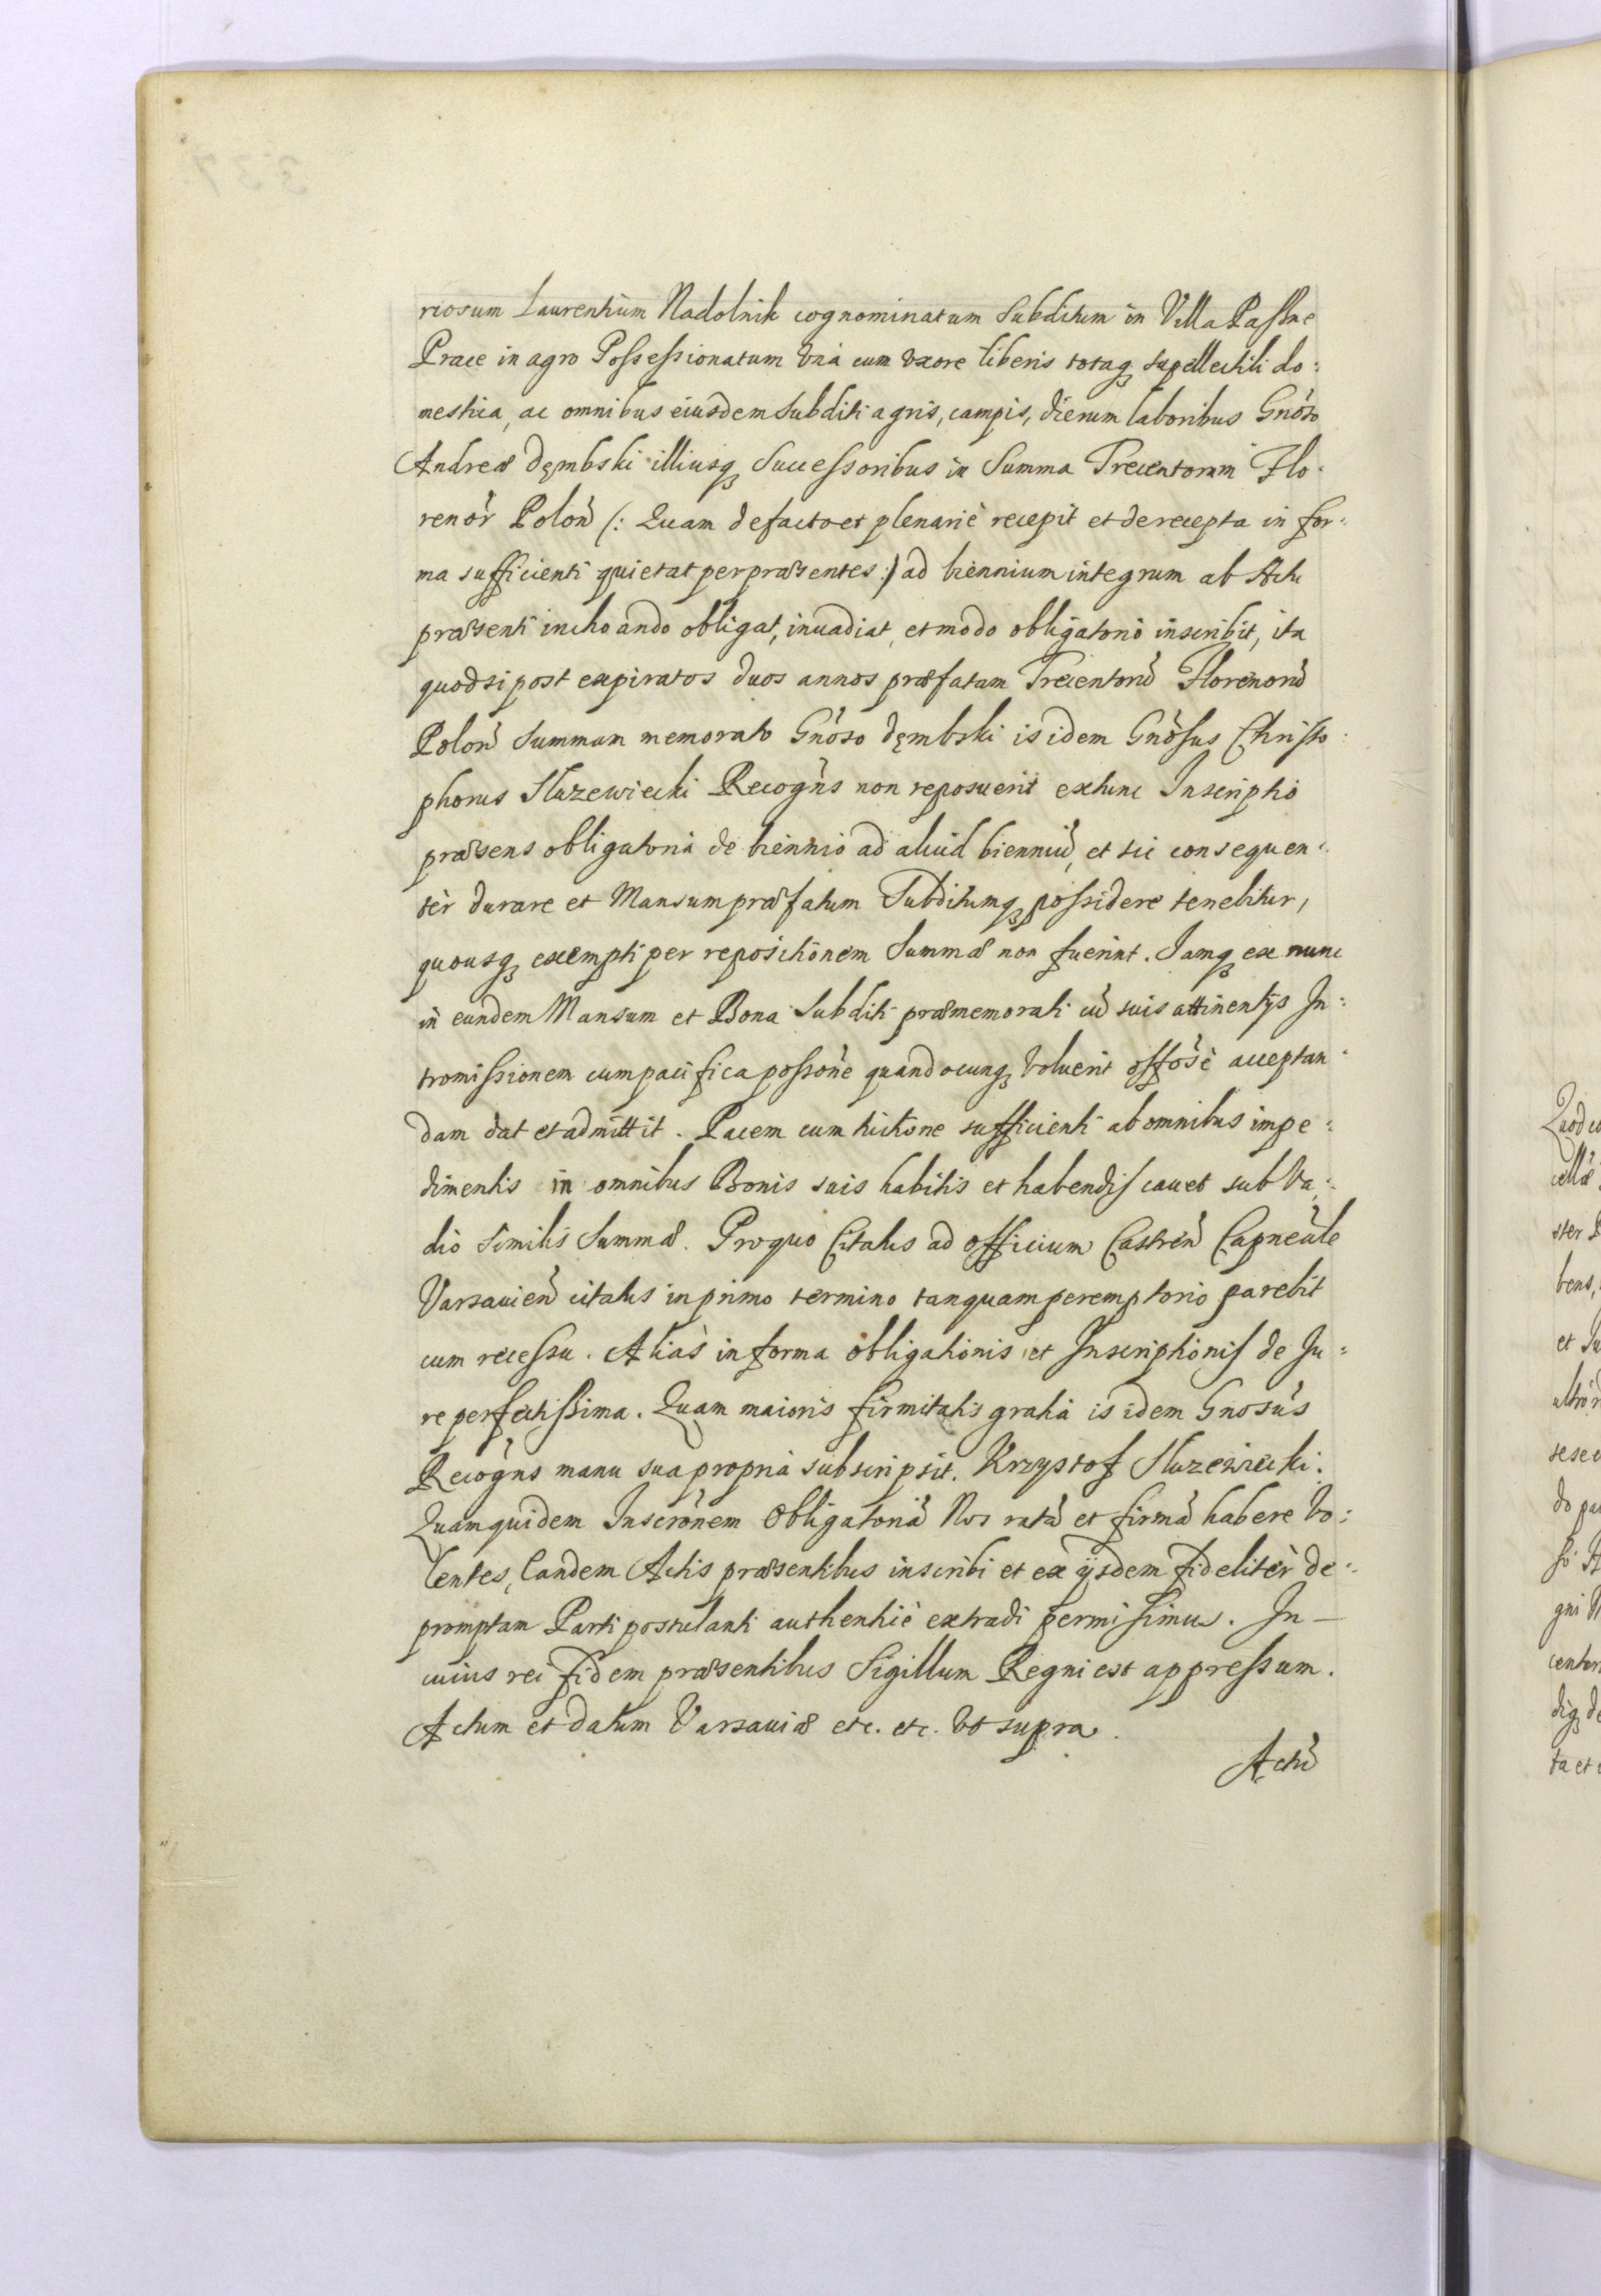 riosum Laurentium Nadolnik cognominatum Subditum in Villa Passne
Prace in agro Possessionatum Vnà cum vxore liberis totaq₃ supellectili do:
mestica, ac omnibus eiusdem Subditi agris, campis, dierum laboribus Gnòso
Andreæ Dęmbski illiusq₃ Successoribus in Summa Trecentorum Flo:
renor̀ Poloñ (: Quam de facto et plenariè recepit et de recepta in for:
ma sufficienti quietat per præsentes :) ad biennium integrum ab Actu
præsenti inchoando obligat, inuadiat, et modo obligatorio inscribit, ita
quod si post expiratos duos annos præfatam Trecentorũ Florenorũ
Poloñ Summam memorato Gnòso Dęmbski is idem Gnòsus Christo:
phorus Służewiecki Recogñs non reposuerit extunc Inscriptio
præsens obligatoria de biennio ad aliud bienniũ, et sic consequen:
tèr durare et Mansum præfatum Subditumq₃ possidere tenebitur,
quousq₃ exempti per repositionem Summæ non fuerint. Iamq₃ ex nunc
in eundem Mansum et Bona Subditi præmemorati cũ suis attinentijs In:
tromissionem cum pacifica possòne quandocunq₃ Voluerit offòsè acceptan:
dam dat et admittit. Pacem cum tuitione sufficienti ab omnibus impe:
dimentis in omnibus Bonis suis habitis et habendis cauet sub Va:
dio Similis Summæ. Pro quo Citatus ad Officium Castreñ Capneàle
Varsauieñ citatus in primo termino tanquam peremptorio parebit
cum recessu. Aliàs in forma obligationis et Inscriptionis de Iu:
re perfectissima. Quam maioris firmitatis gratia is idem Gnosùs
Recogñs manu sua propria subscripsit. Krzysztof Służewiecki.
Quamquidem Inscrònem Obligatoriã Nos ratã et firmã habere Vo:
lentes, Eandem Actis præsentibus inscribi et ex ijsdem fidelitèr de:
promptam Parti postulanti authenticè extradi permisimus. In
cuius rei fidem præsentibus Sigillum Regni est appressum.
Actum et datum Varsauiæ etc. etc. Vt supra.
Actũ